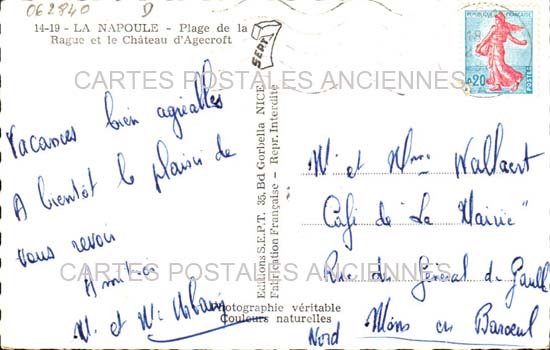 062840 D
14-19 - LA NAPOULE - Plage de la
Rague et le Château d'Agecroft
SEPT
REPUBLIQUE FRANÇAISE
0,20
POSTES
CARTES POSTALES ANCIENNES
Vacances bien agréables
A bientôt le plaisir de
vous revoir
Amitiés
M. et Mme Urbain
Editions S.E.P.T. 35, Bd Gorbella NICE
Fabrication Française - Repr. Interdite
Photographie véritable
Couleurs naturelles
Mr et Mme Wallaert
Café de "La Mairie"
Rue du Général de Gaulle
Nord Mons en Baroeul
CARTES POSTALES ANCIENNES